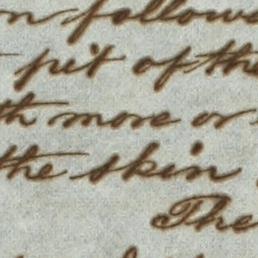 follows
pit of the
more or
the skin
The